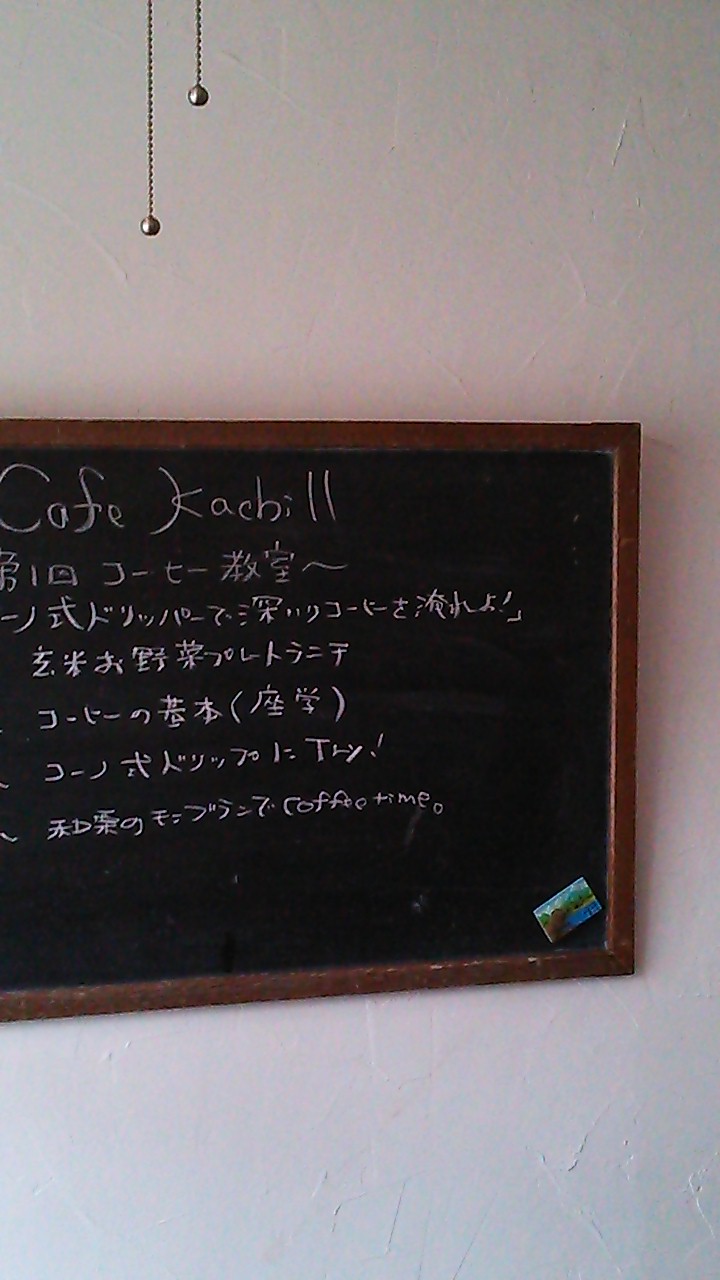 Cafe Kachill
第1回 コーヒー教室〜
ーノ式ドリッパーで深いりコーヒーを淹れよ!」
玄米お野菜プレートランチ
コーヒーの基本(座学)
〜 コーノ式ドリップにTry!
〜 和栗のモンブランでcoffee time。